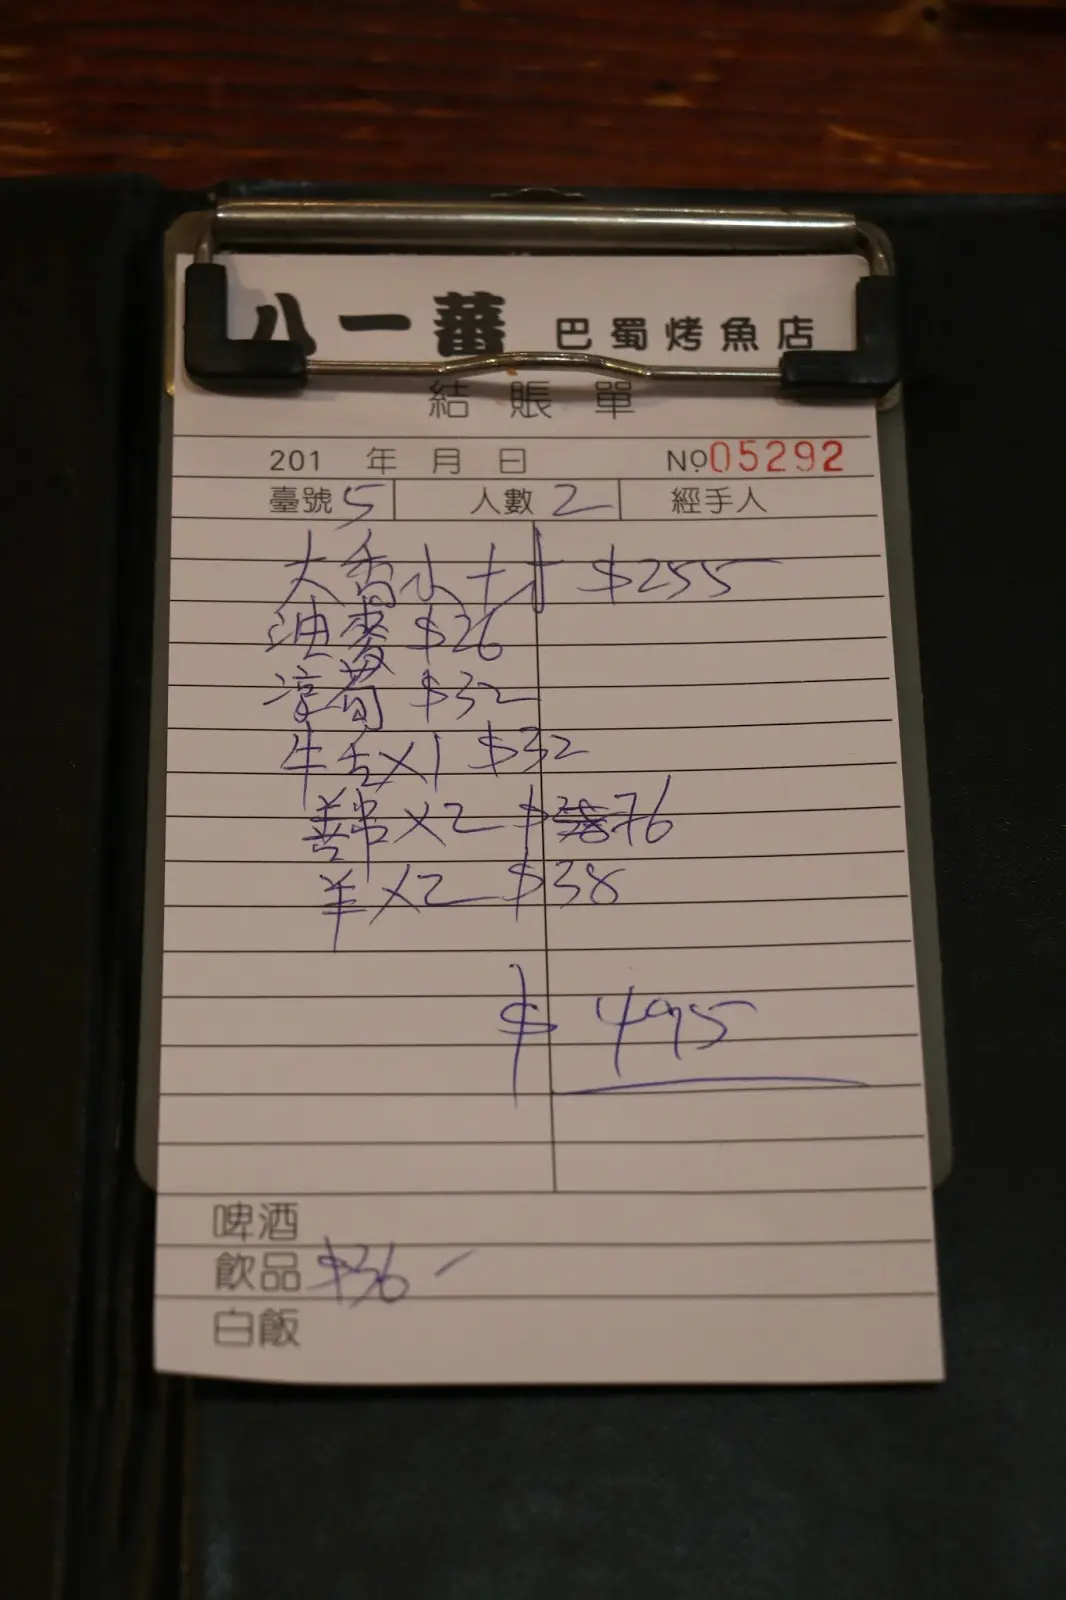 八一蕃 巴蜀烤魚店
結賬單
201 年 月 日 №05292
臺號 5 人數 2 經手人
大香水 $255
油麥 $26
凉 $32
牛舌×1 $32
×2 $76
羊×2 $38
$495
啤酒
飲品 $36
白飯